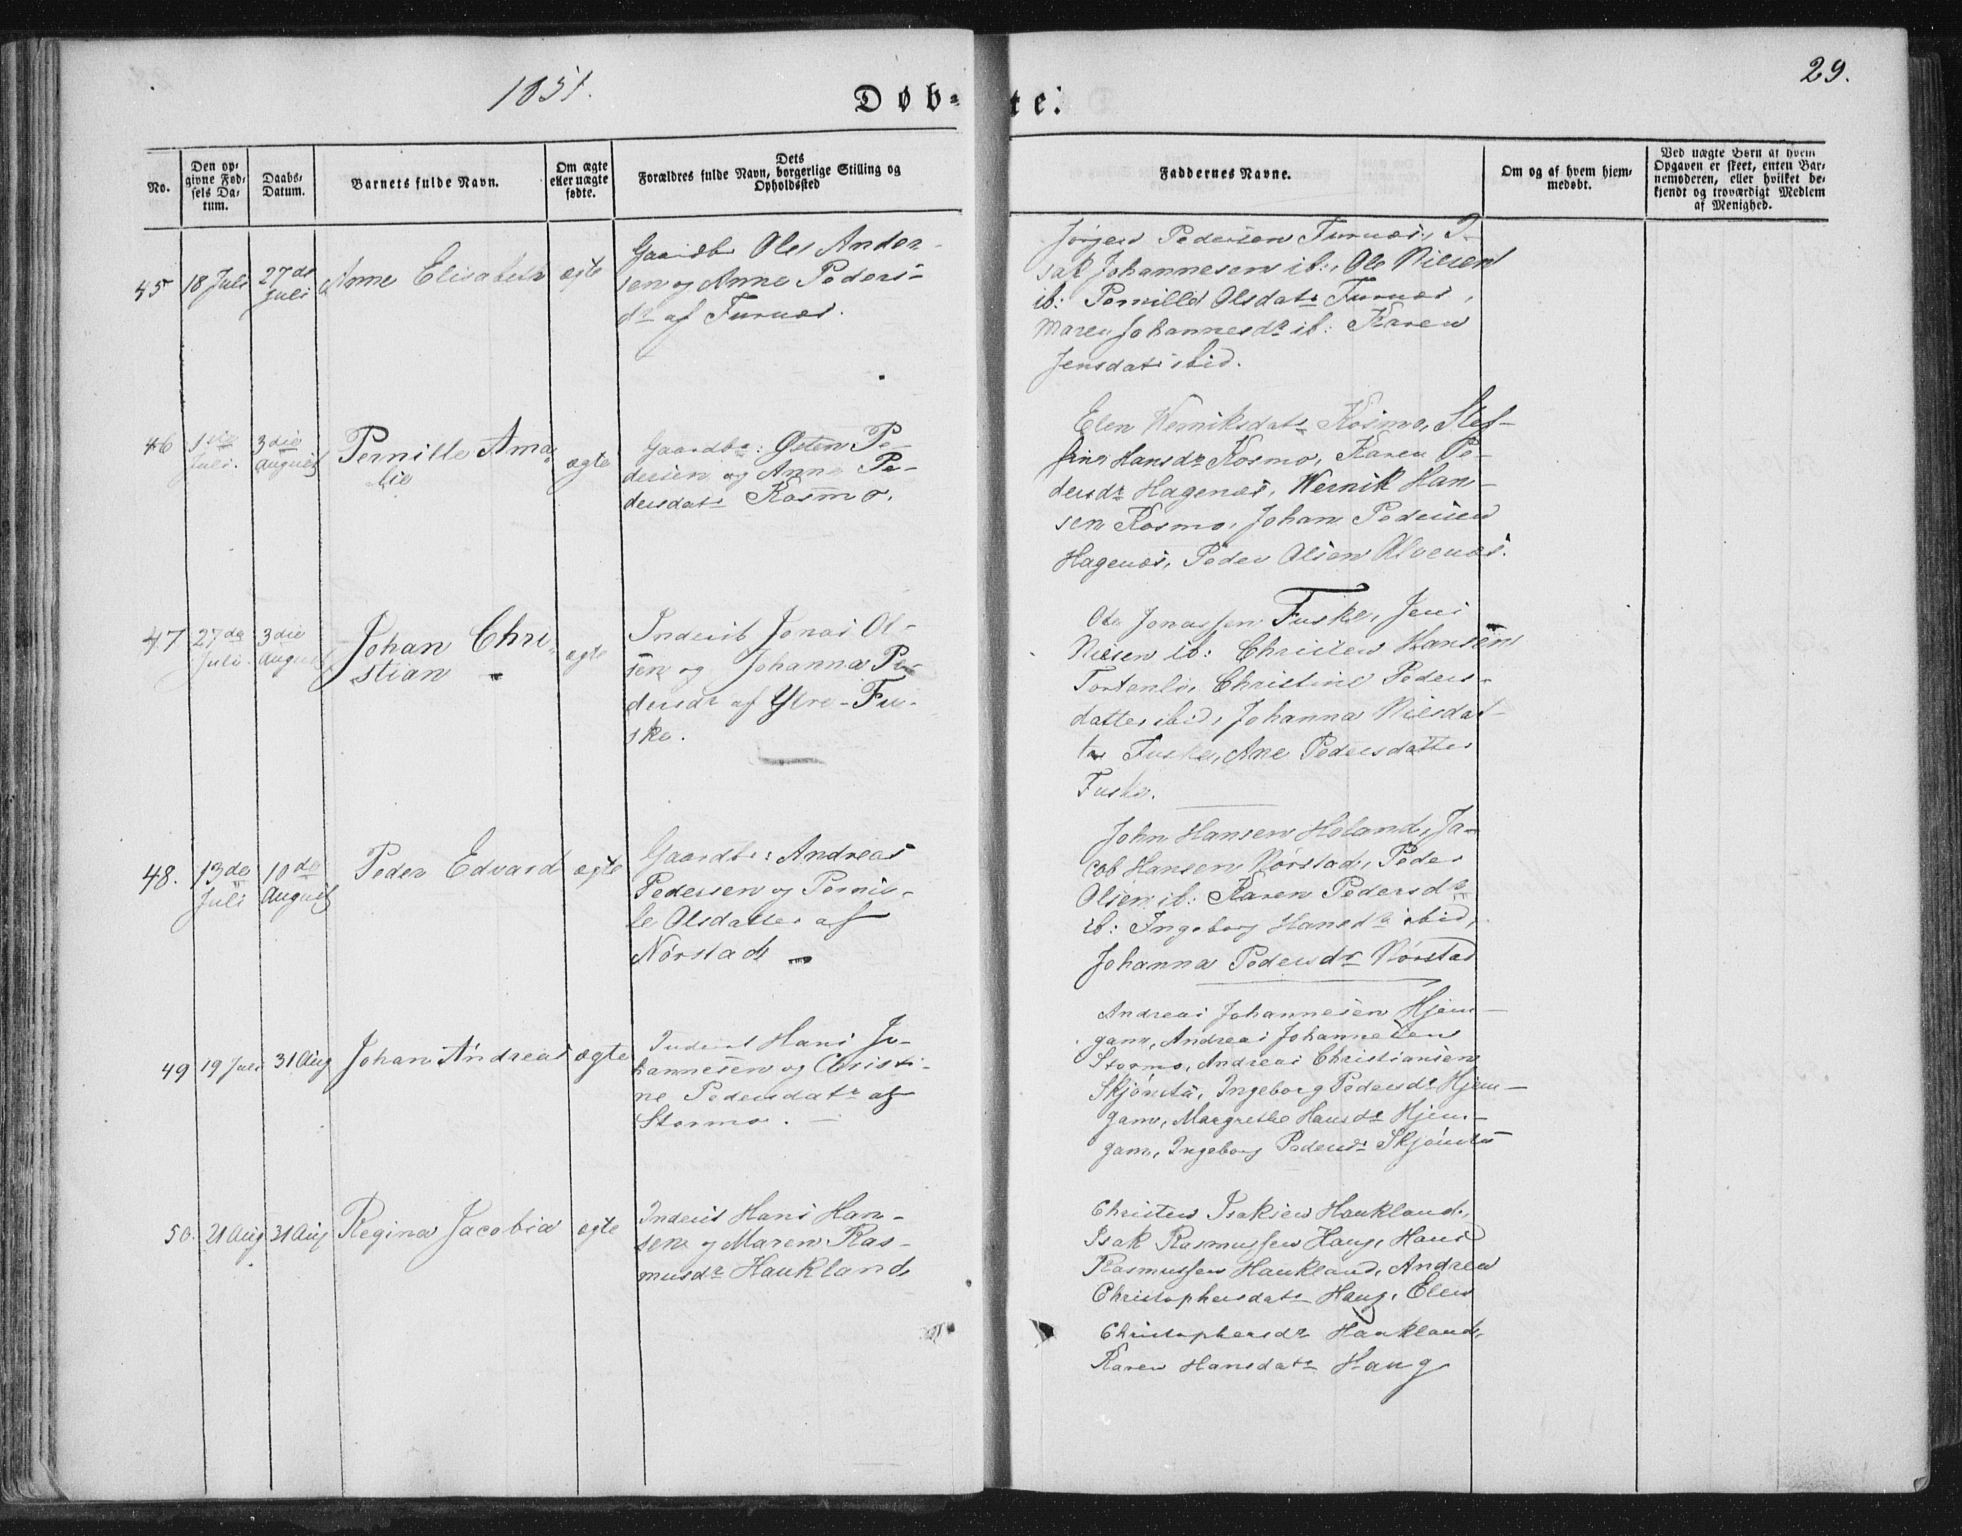 1851.
Døb-
te.
29.
No.
Den op-
givne Fød-
sels Da-
tum.
Daabs-
Datum.
Barnets fulde Navn.
Om ægte
eller uægte
fødte.
Dets
Forældres fulde Navn, borgerlige Stilling og
Opholdssted
Faddernes Navne.
Om og af hvem hjem-
medøbt.
Ved uægte Børn af hvem
Opgaven er skeet, enten Bar-
nemoderen, eller hvilket be-
kjendt og troværdigt Medlem
af Menighed.
45
18 Juli
27de
Juli
Anne Elisabeth
ægte
Gaardbr Ole Ander-
sen og Anne Peders-
dr af Furnes.
Jørgen Pedersen Furnes, I-
sak Johannesen ib:, Ole Nielsen
ib: Pernille Olsdatr Furnes,
Maren Johannesdr ib: Karen
Jensdatr ibid.
46
Juli.
3die
August
Pernille Ama-
lie
ægte
Gaardbr: Østen Pe-
dersen og Anne Pe-
dersdatr Kosmo.
Elen Werniksdatr Kosmo, Stef-
fine Hansdr Kosmo, Karen Pe-
dersdr Hagenes, Wernik Han-
sen Kosmo, Johan Pedersen
Hagenes, Peder Olsen Alvenes.
47
27de
Juli.
3die
August
Johan Chri-
stian
ægte
Inderst Jonas Ol-
sen og Johanna Pe-
dersdr af Ytre-Fu-
ske.
Ole Jonassen Fuske, Jens
Nielsen ib: Christen Hansen
Tortenli, Christine Peders-
datter ibid, Johanna Nielsdat-
ter Fuske, Ane Pedersdatter
Fuske.
48.
13de
Juli
10de
August
Peder Edvard
ægte
Gaardbr: Andreas
Pedersen og Pernil-
le Olsdatter af
Nørstad
John Hansen Høland, Ja-
cob Hansen Nørstad, Peder
Olsen ib: Karen Pedersdr
ib: Ingeborg Hansdr ibid,
Johanna Pedersdr Nørstad
49
19 Juli
31 Aug
Johan Andreas
ægte
Inderst Hans Jo-
hannesen og Christi-
ne Pedersdatr af
Stormo.
Andreas Johannesen Hjem-
gam, Andreas Johannesen
Stormo, Andreas Christiansen
Skjønstå, Ingeborg Pedersdr Hjem-
gam, Margrethe Hansdr Hjem-
gam, Ingeborg Pedersdr Skjønstå
50.
21 Aug
31 Aug
Regina Jacobia
ægte
Inderst Hans Han-
sen og Maren Ras-
musdr Haukland
Christen Isaksen Haukland,
Isak Rasmussen Haug, Hans
Rasmussen Haukland, Andrea
Christophersdatr Haug, Elen
Christophersdr Haukland,
Karen Hansdatr Haug